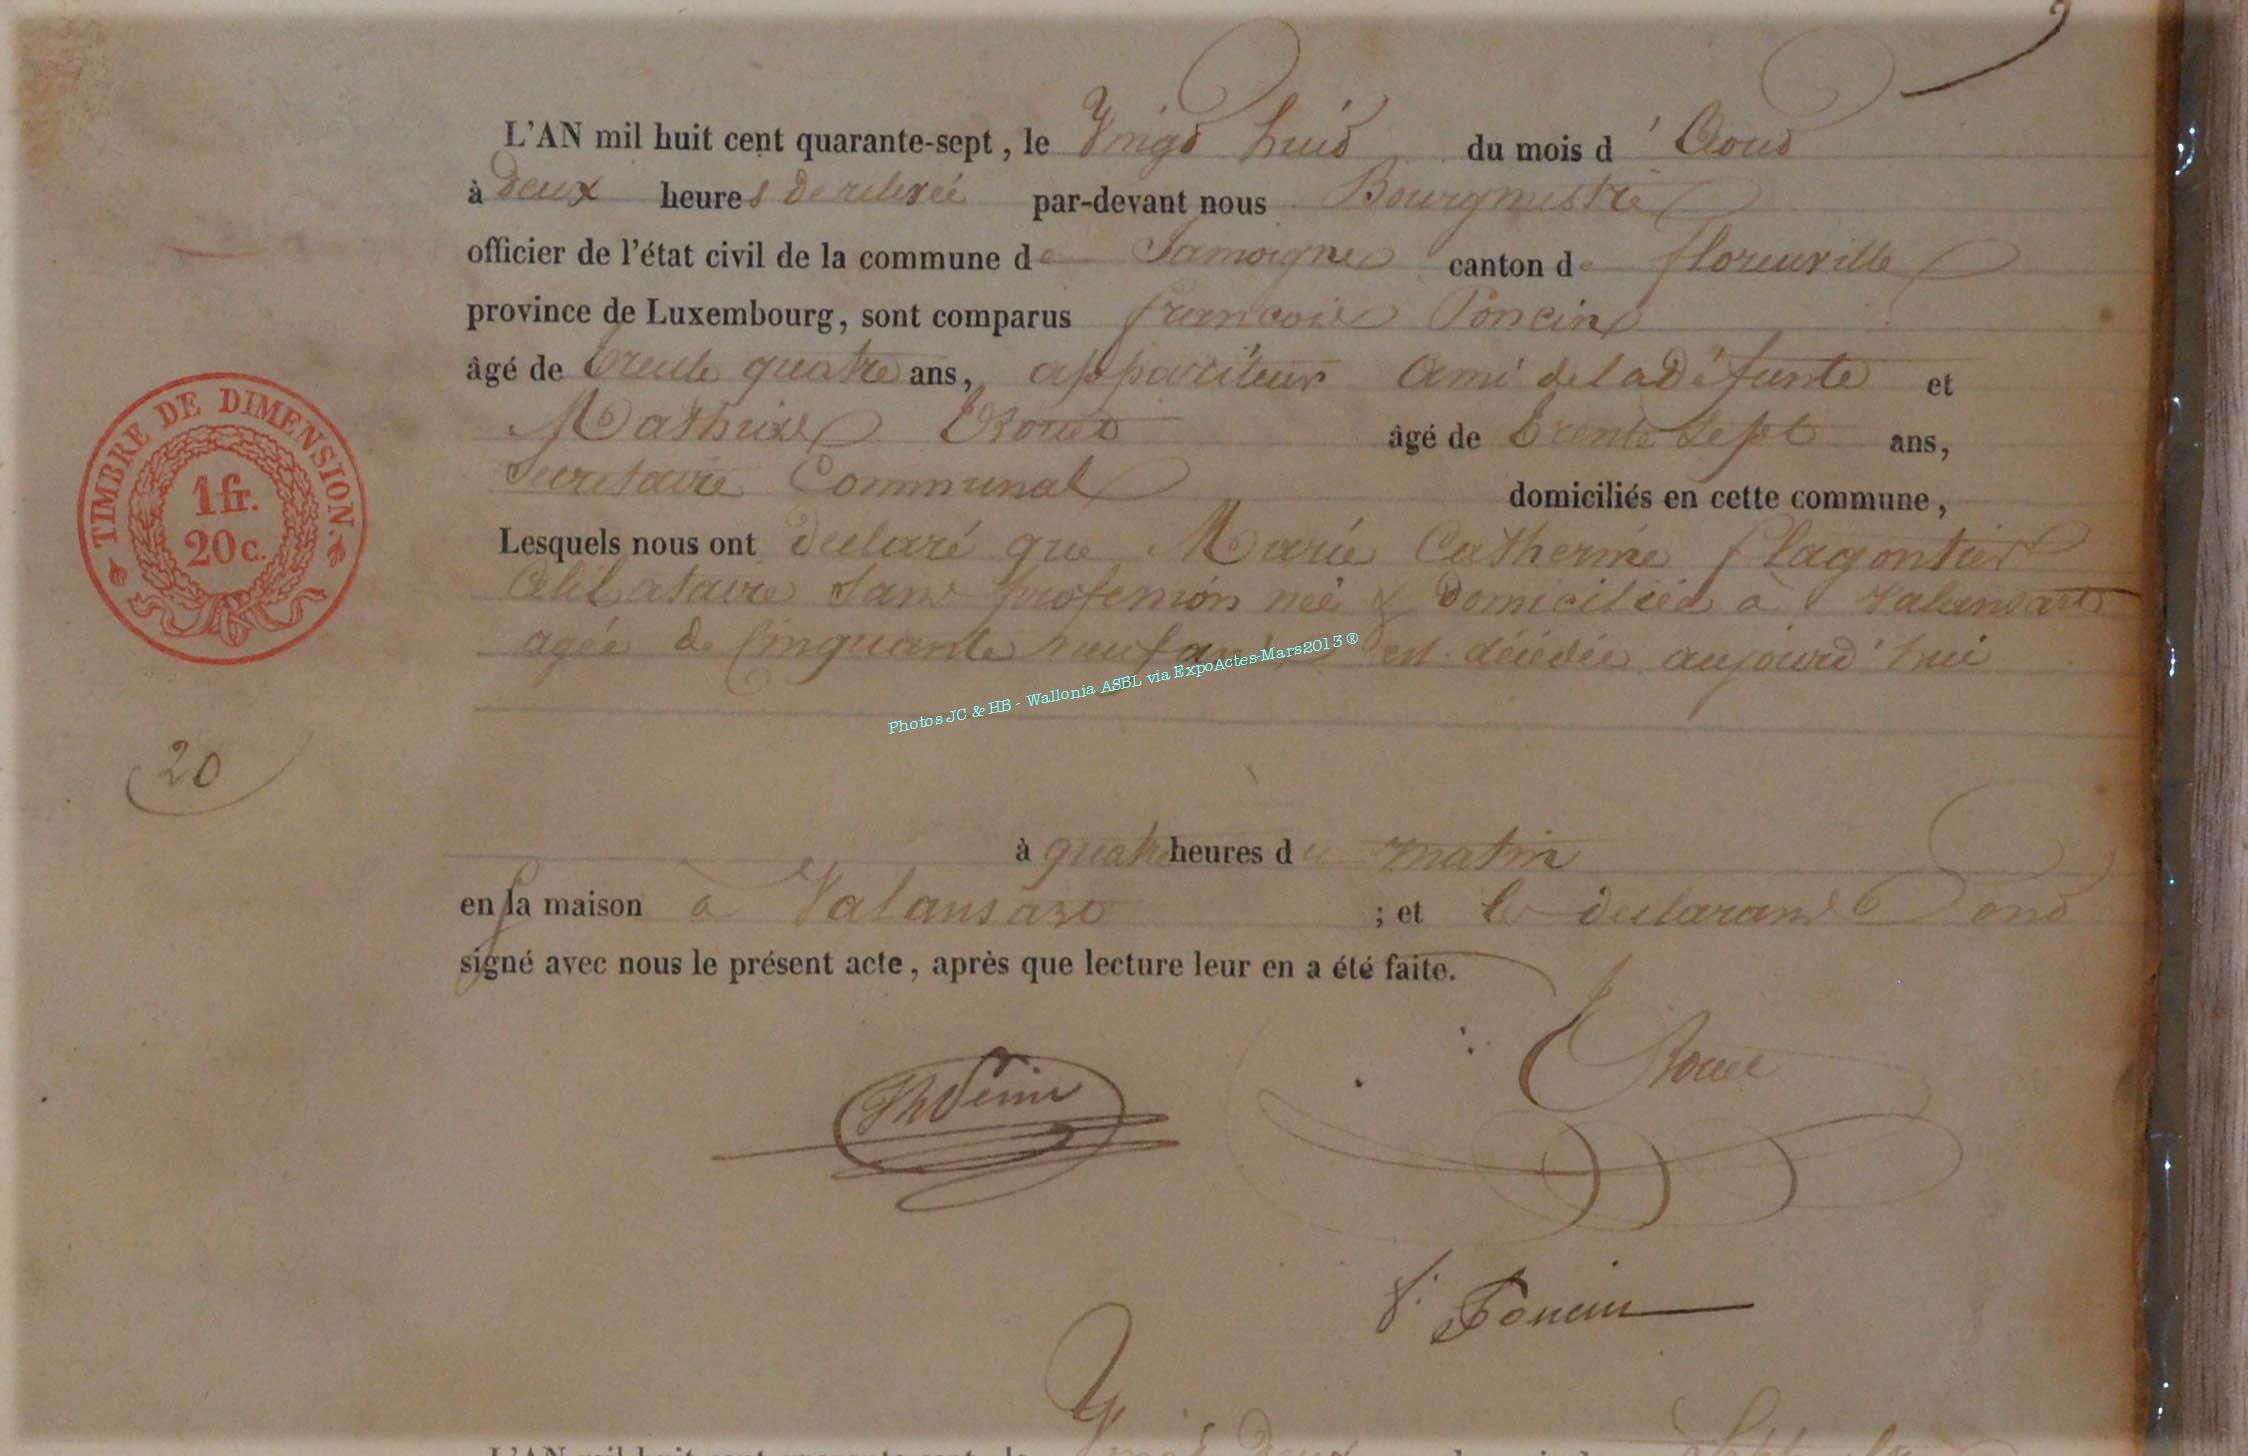 L'AN mil huit cent quarante-sept, le Vingt huit du mois d'Aout
à Deux heures de relevée par-devant nous Bourgmestre
officier de l'état civil de la commune de Jamoigne canton de florenville
province de Luxembourg, sont comparus francois Poncin
âgé de trente quatre ans, appariteur Ami de la Défunte et
Mathieu âgé de trente sept ans,
Secretaire Communal domiciliés en cette commune,
Lesquels nous ont declaré que Marie Catherine flagontier
Celibataire Sans profession née & Domiciliée à Valansart
agée de Cinquante neuf ans est décédée aujourd'hui
à quatre heures du matin
en sa maison à Valansart ; et les declarants ont
signé avec nous le présent acte, après que lecture leur en a été faite.
TIMBRE DE DIMENSION.
1 fr.
20 c.
20
Photos JC & HB - Wallonia ASBL via ExpoActes-Mars2013 ®
f. Poncin